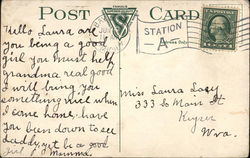 POST CARD
FAMOUS
STATION
Address Only
Hello Laura are
you being a good
girl you must help
grandma real good
I will bring you
something nice when
I come home. have
you been down to see
daddy yet be a good
girl Mamma.
Miss Laura Lacy
333 E Main St
Keyser
W va.